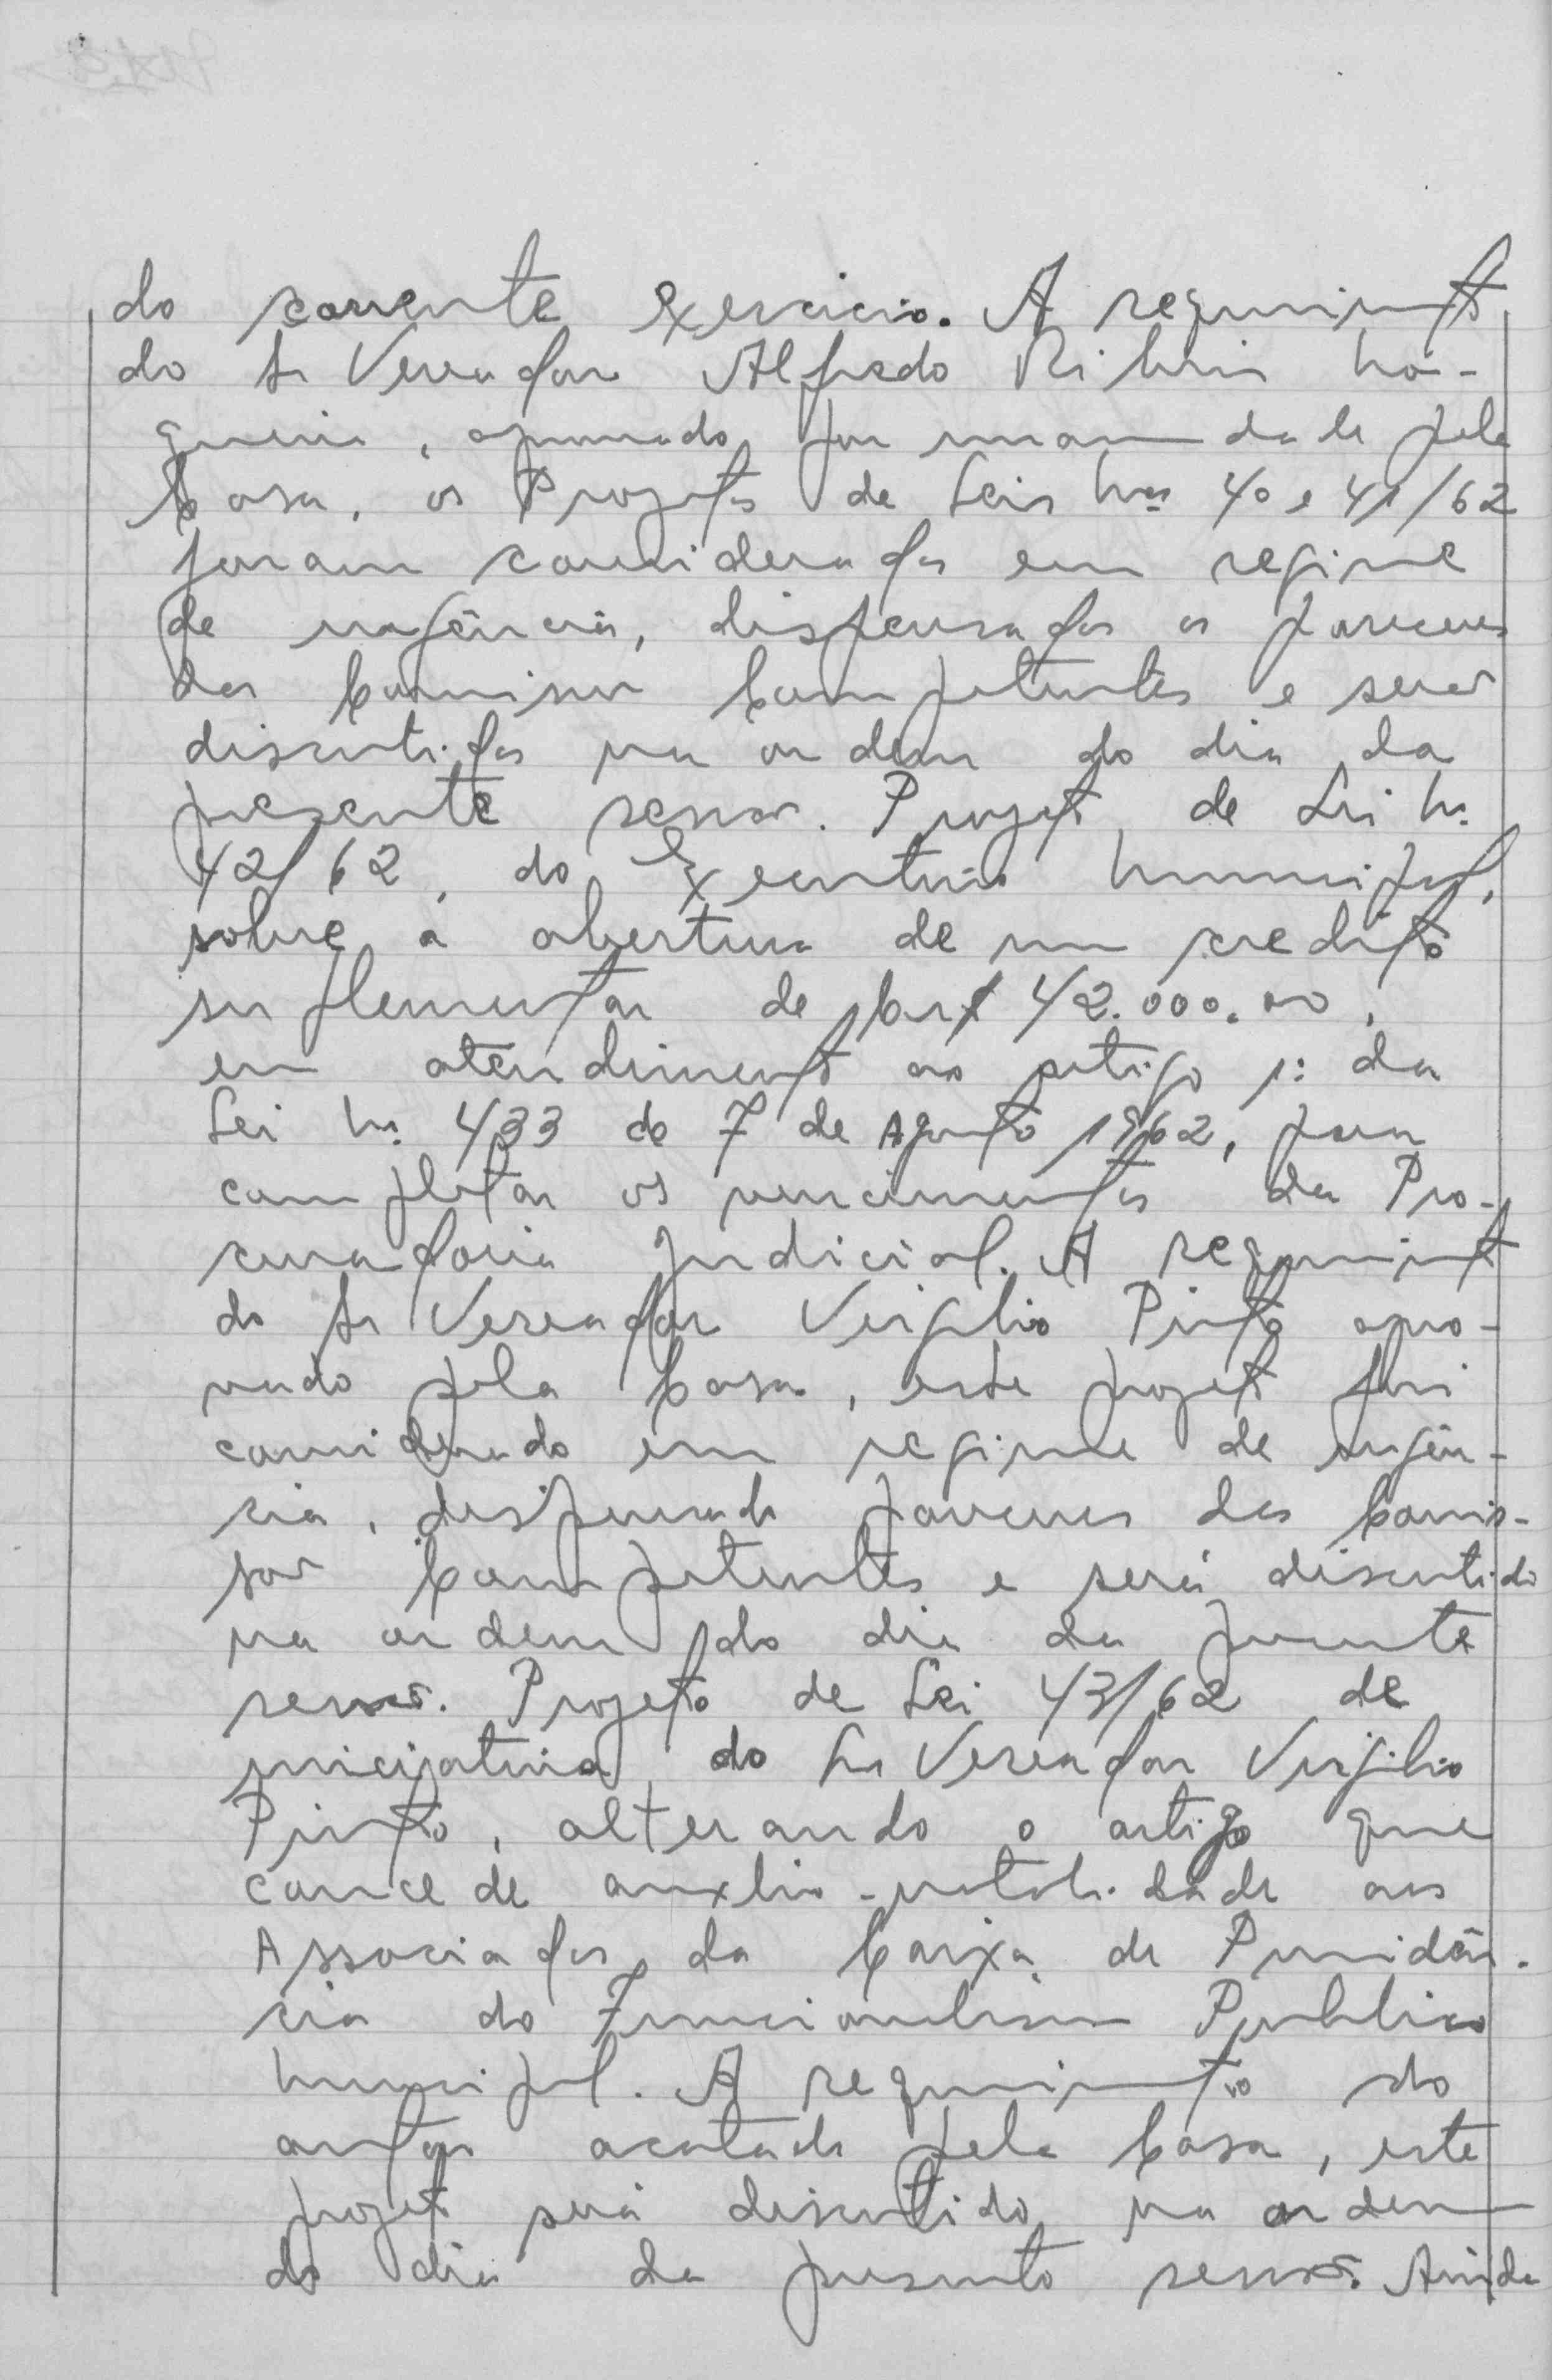 do corrente exercicio. A requerimento
do Sr Vereador Alfredo Ribeiro No-
gueira, aprovado por unanimidade pela
Casa, os Projetos de Leis Nos 40 e 41/62
foram considerados em regime
de urgência, dispensados os pareceres
das Comissões Competentes e serão
discutidos na ordem do dia da
presente sessão. Projeto de Lei No.
42/62, do Executivo Municipal,
sobre a abertura de um credito
suplementar de Cr$ 42.000,00,
em atendimento ao artigo 1º da
Lei No. 433 de 7 de Agosto 1962, para
completar os vencimentos da Pro-
curadoria Judicial. A requerimento
do Sr Vereador Virgilio Pinto apro-
vado pela Casa, este projeto foi
considerado em regime de urgên-
cia, dispensado pareceres das Comis-
sões Competentes e será discutido
na ordem do dia da presente
sessão. Projeto de Lei 43/62 de
iniciativa do Sr Vereador Virgilio
Pinto, alterando o artigo que
concede auxilio-natalidade aos
Associados da Caixa de Previdên-
cia do Funcionalismo Publico
Municipal. A requerimento do
autor acatado pela Casa, este
projeto será discutido na ordem
do dia da presente sessão. Ainda